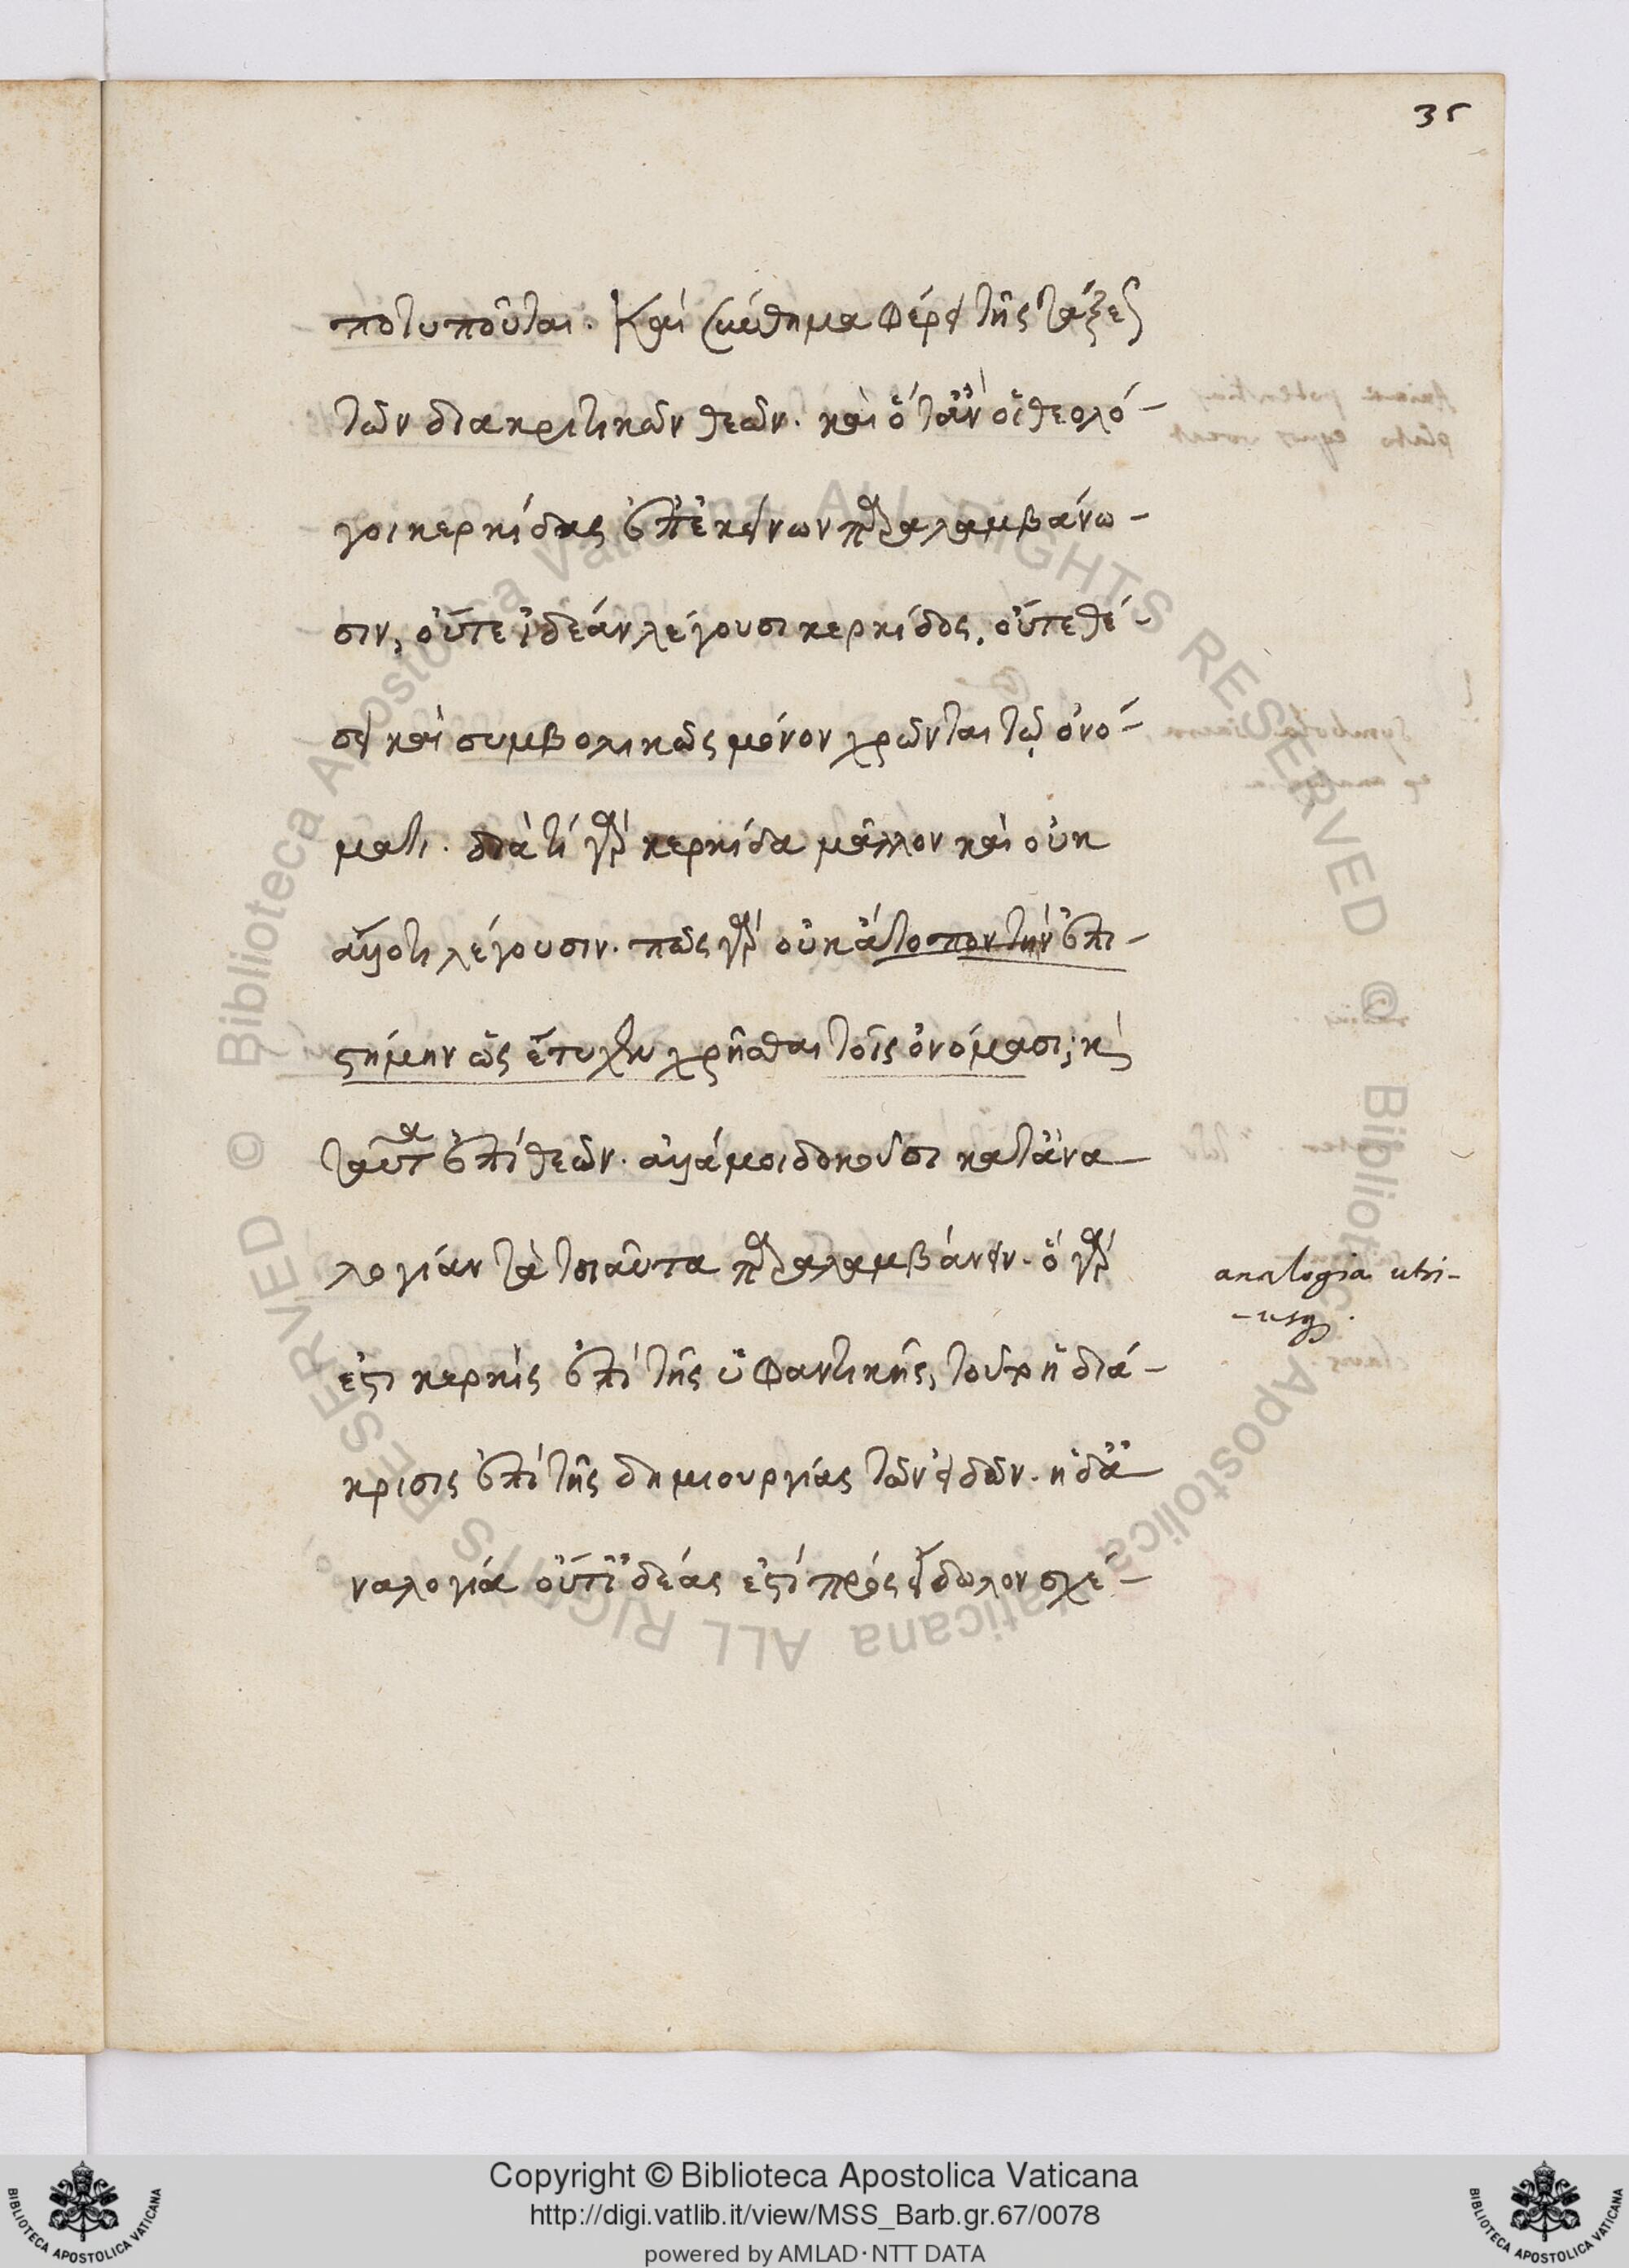 35
ποτυποῦται. Καὶ σύνθημα φέρει τῆς τάξεως
τῶν διακριτικῶν θεῶν. καὶ ὅταν οἱ θεολό-
γοι κερκίδας ἐπ' ἐκείνων παραλαμβάνω-
σιν, οὔτε ἰδέαν λέγουσι κερκίδος, οὔτε θέ-
σει καὶ συμβολικῶς μόνον χρῶνται τῷ ὀνό-
ματι. διὰ τί γὰρ κερκίδα μᾶλλον καὶ οὐκ
ἄλλο τι λέγουσιν. πῶς γὰρ οὐκ ἄτοπον τὴν ἐπι-
στήμην ὡς ἔτυχεν χρῆσθαι τοῖς ὀνόμασι; κὶ
ταῦτα ἐπὶ θεῶν. ἀλλά μοι δοκοῦσι κατ' ἀνα-
λογίαν τὰ τοιαῦτα παραλαμβάνειν. ὃ γὰρ
analogia utri-
-usq.
ἐστι κερκὶς ἐπὶ τῆς ὑφαντικῆς, τοῦτο ἡ διά-
κρισις ἐπὶ τῆς δημιουργίας τῶν εἰδῶν. ἡ δὲ ἀ-
ναλογία οὔτ' ἰδέας ἐστὶ πρὸς εἴδωλον σχέ-
Copyright © Biblioteca Apostolica Vaticana
http://digi.vatlib.it/view/MSS_Barb.gr.67/0078
powered by AMLAD·NTT DATA
BIBLIOTECA APOSTOLICA VATICANA
BIBLIOTECA APOSTOLICA VATICANA
© Biblioteca Apostolica Vaticana ALL RIGHTS RESERVED
© Biblioteca Apostolica Vaticana ALL RIGHTS RESERVED